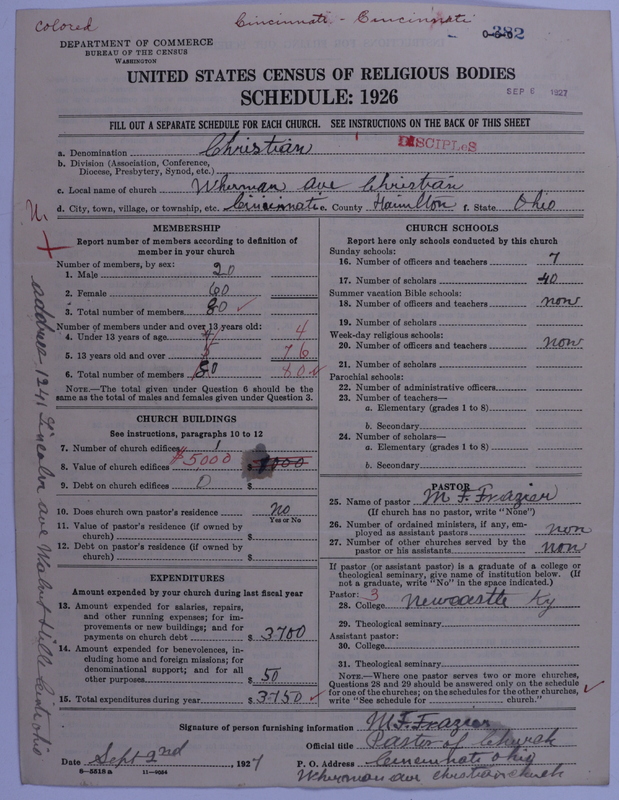 colored
Cincinnati - Cincinnati
382
DEPARTMENT OF COMMERCE
BUREAU OF THE CENSUS
WASHINGTON
UNITED STATES CENSUS OF RELIGIOUS BODIES
SCHEDULE: 1926
SEP 6 1927
FILL OUT A SEPARATE SCHEDULE FOR EACH CHURCH. SEE INSTRUCTIONS ON THE BACK OF THIS SHEET
a. Denomination Christian DISCIPLES
b. Division (Association, Conference, Diocese, Presbytery, Synod, etc.)
c. Local name of church Wherman ave Christian
d. City, town, village, or township, etc. Cincinnati e. County Hamilton f. State Ohio
MEMBERSHIP
Report number of members according to definition of member in your church
Number of members, by sex:
1. Male 20
2. Female 60
3. Total number of members 80
Number of members under and over 13 years old:
4. Under 13 years of age 4
5. 13 years old and over 76
6. Total number of members 80 80
NOTE.—The total given under Question 6 should be the same as the total of males and females given under Question 3.
CHURCH BUILDINGS
See instructions, paragraphs 10 to 12
7. Number of church edifices 1
8. Value of church edifices $5000 $
9. Debt on church edifices 0 $
10. Does church own pastor's residence No
Yes or No
11. Value of pastor's residence (if owned by church) $
12. Debt on pastor's residence (if owned by church) $
EXPENDITURES
Amount expended by your church during last fiscal year
13. Amount expended for salaries, repairs, and other running expenses; for improvements or new buildings; and for payments on church debt $ 3700
14. Amount expended for benevolences, including home and foreign missions; for denominational support; and for all other purposes $ 50
15. Total expenditures during year $ 3750
CHURCH SCHOOLS
Report here only schools conducted by this church
Sunday schools:
16. Number of officers and teachers 7
17. Number of scholars 40
Summer vacation Bible schools:
18. Number of officers and teachers non
19. Number of scholars
Week-day religious schools:
20. Number of officers and teachers non
21. Number of scholars
Parochial schools:
22. Number of administrative officers
23. Number of teachers—
a. Elementary (grades 1 to 8)
b. Secondary
24. Number of scholars—
a. Elementary (grades 1 to 8)
b. Secondary
PASTOR
25. Name of pastor M F Frazier
(If church has no pastor, write "None")
26. Number of ordained ministers, if any, employed as assistant pastors non
27. Number of other churches served by the pastor or his assistants non
If pastor (or assistant pastor) is a graduate of a college or theological seminary, give name of institution below. (If not a graduate, write "No" in the space indicated.)
Pastor: 3
28. College Newcastle Ky
29. Theological seminary
Assistant pastor:
30. College
31. Theological seminary
NOTE.—Where one pastor serves two or more churches, Questions 28 and 29 should be answered only on the schedule for one of the churches; on the schedules for the other churches, write "See schedule for church."
Signature of person furnishing information M. F. Frazier
Official title Pastor of Church
Date Sept 2nd, 1927 P. O. Address Cincinnati Ohio
8-5518a 11-9024
Wherman ave christian church
address 1241 Lincoln ave Walnut Hills Cinti ohio